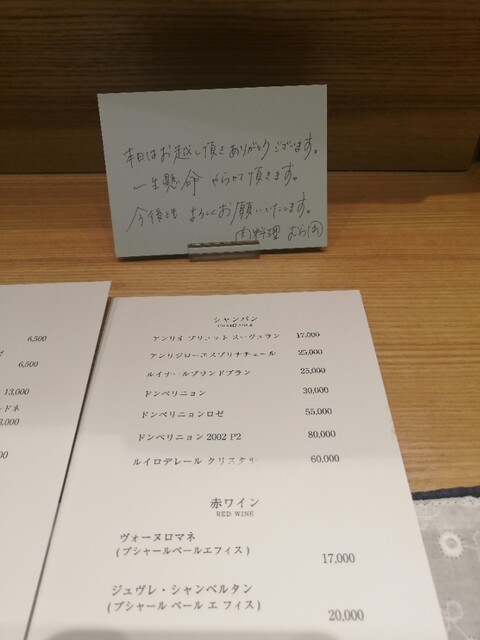 本日はお越し頂きありがとうございます。
一生懸命 やらせて頂きます。
今後とも よろしくお願いいたします。
肉料理 むら
6,500
6,500
13,000
シャンパン
CHAMPAGNE
17,000
25,000
ルイナールブランドブラン 25,000
ドンペリニョン 30,000
ドンペリニョンロゼ 55,000
ドンペリニョン 2002 P2 80,000
ルイロデレール クリスタル 60,000
赤ワイン
RED WINE
ヴォーヌロマネ
(ブシャールペールエフィス) 17,000
ジュヴレ・シャンベルタン
(ブシャール ペール エ フィス) 20,000